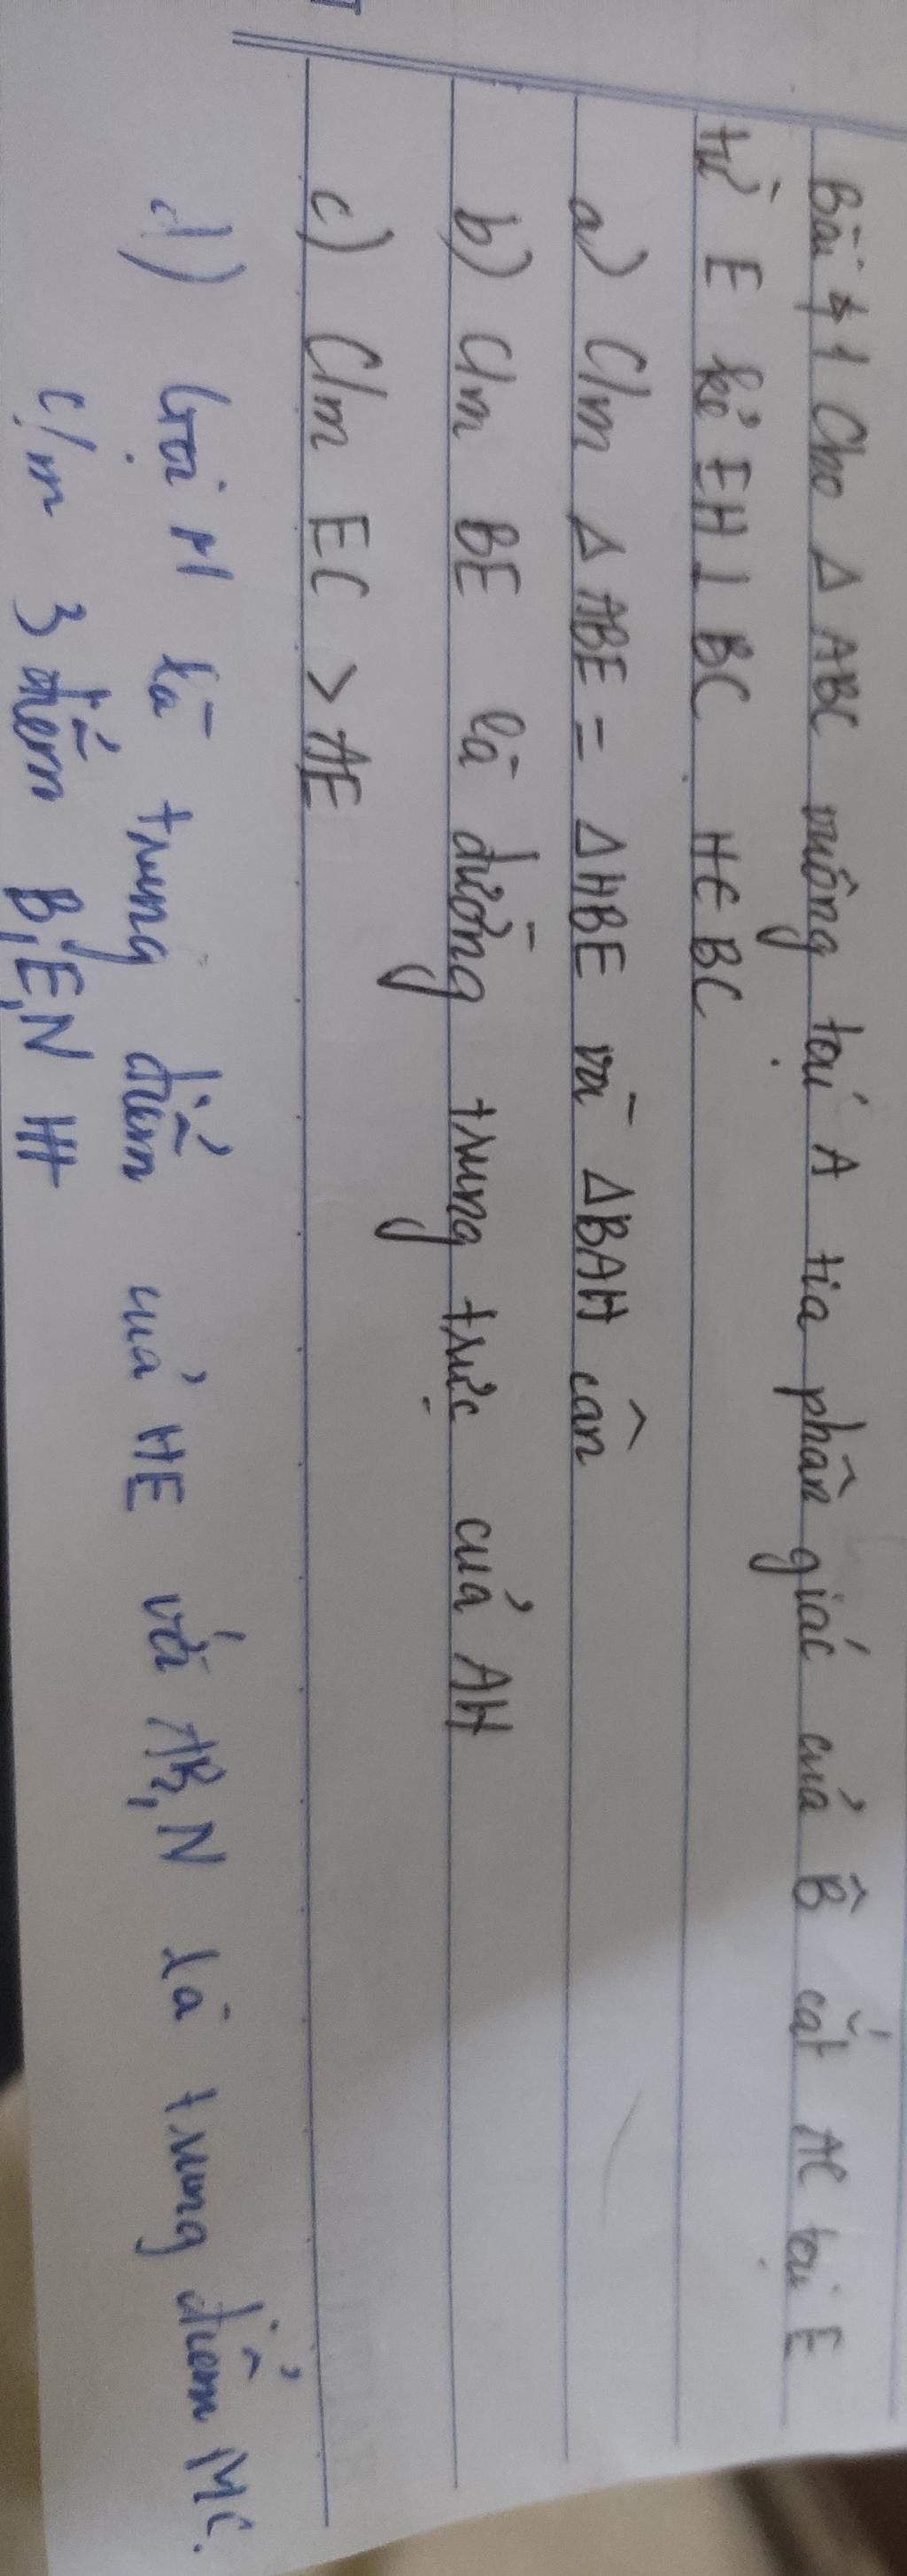 Bài 1 Cho Δ ABC vuông tại A tia phân giác của B̂ cắt AC tại E
từ E kẻ EH ⊥ BC H ∈ BC
a) C/m Δ ABE = Δ HBE và ΔBAH cân
b) C/m BE là đường trung trực của AH
c) C/m EC > AE
d) Gọi M là trung điểm của HE với AB, N là trung điểm MC.
c/m 3 điểm B, E, N